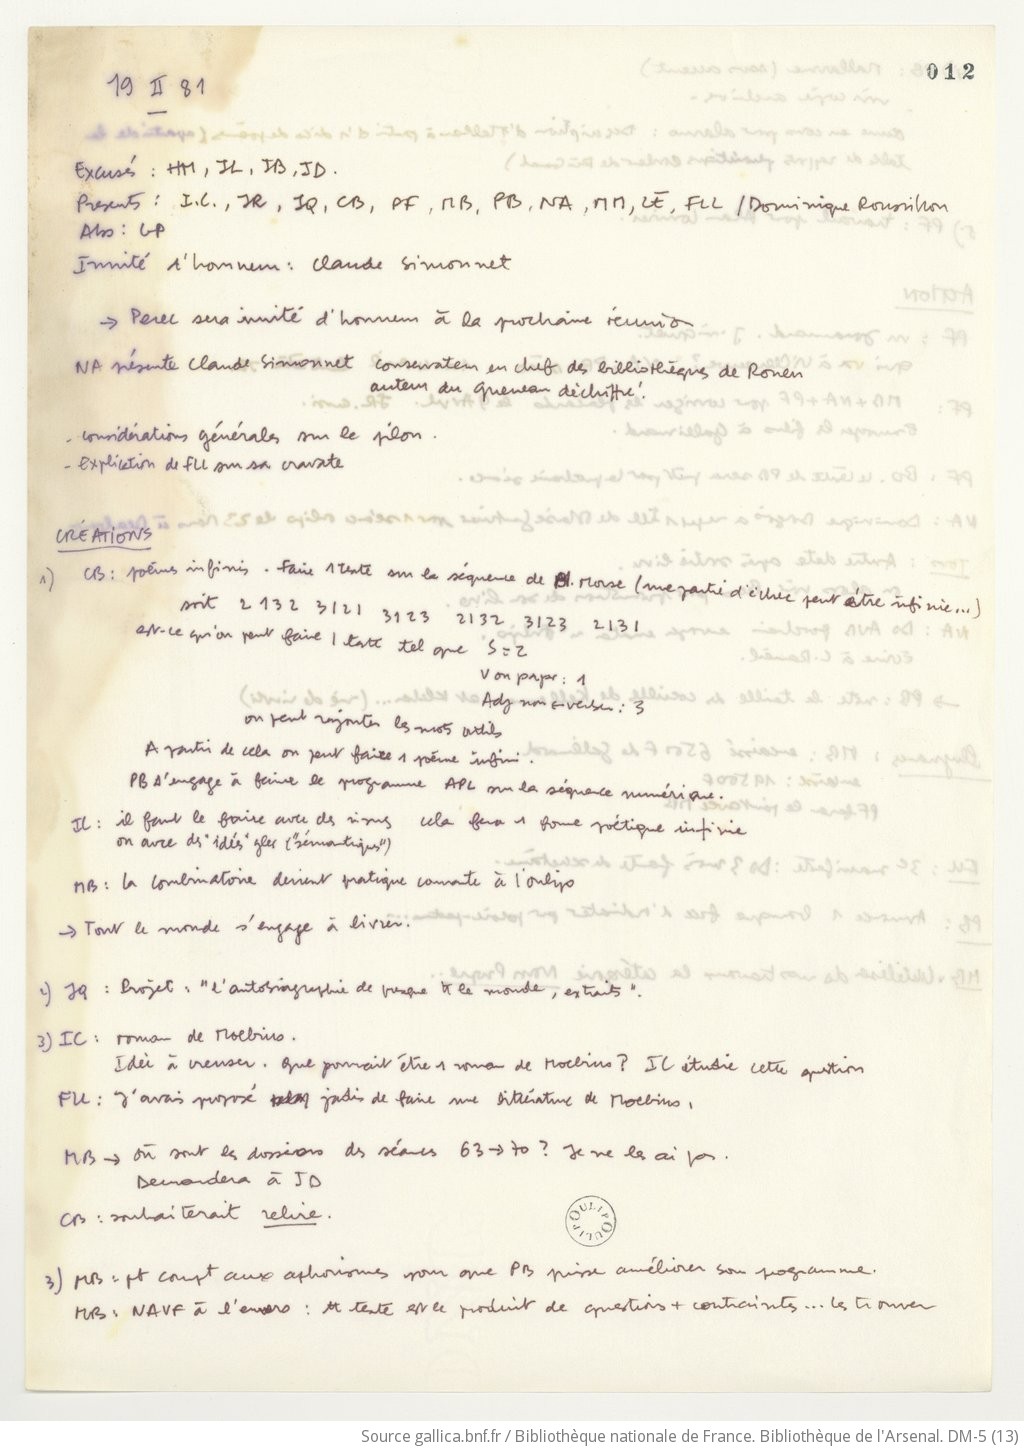 012
19 II 81
Excusés : HM, JL, JB, JD.
Présents : I.C., JR, JQ, CB, PF, MB, PB, NA, MM, LE, FLL / Dominique Roussillon
Abs : GP
Invité d'honneur : Claude Simonnet
→ Perec sera invité d'honneur à la prochaine réunion
NA présente Claude Simonnet conservateur en chef des bibliothèques de Rouen
auteur du Queneau déchiffré !
- considérations générales sur le pilon.
- Explication de FLL sur sa cravate
CRÉATIONS
1) CB : poèmes infinis. Faire 1 texte sur la séquence de M. Morse (une partie d'échec peut être infinie...)
soit 2132 3121 3123 2132 3123 2131
est-ce qu'on peut faire 1 texte tel que S = 2
V on ppr : 1
Adj non verbe : 3
on peut rajouter les mots outils
A partir de cela on peut faire 1 poème infini.
PB s'engage à faire le programme APL sur la séquence numérique.
IL : il faut le faire avec des rimes cela fera 1 forme poétique infinie
ou avec des "idées" gles ("sémantiques")
MB : la combinatoire devient pratique courante à l'oulipo
→ Tout le monde s'engage à livrer.
2) JQ : Projet : "l'autobiographie de presque tt le monde, extraits".
3) IC : roman de Moebius.
Idée à creuser. Que pourrait être 1 roman de Moebius ? IC étudie cette question
FLL : J'avais proposé jadis de faire une littérature de Moebius.
MB → où sont les dossiers des séances 63 → 70 ? Je ne les ai pas.
Demandera à JD
CB : souhaiterait relire.
OULIPO OULIPO
3) MB : pt compt aux aphorismes pour que PB puisse améliorer son programme.
MB : NAVF à l'envers : tt texte est le produit de questions + contraintes... les trouver
Source gallica.bnf.fr / Bibliothèque nationale de France. Bibliothèque de l'Arsenal. DM-5 (13)